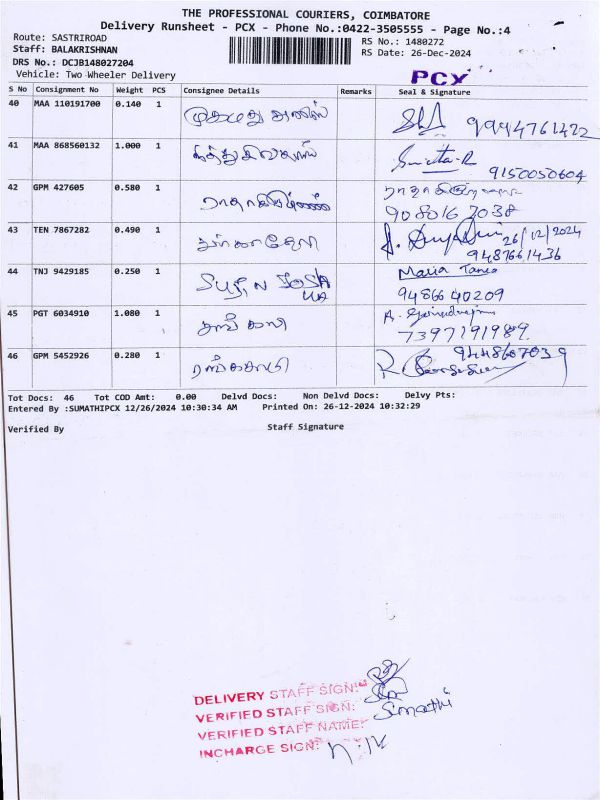 THE PROFESSIONAL COURIERS, COIMBATORE
Delivery Runsheet - PCX - Phone No.:0422-3505555 - Page No.:4
Route: SASTRIROAD
RS No.: 1480272
Staff: BALAKRISHNAN
RS Date: 26-Dec-2024
DRS No.: DCJB148027204
Vehicle: Two Wheeler Delivery
PCX
S No Consignment No Weight PCS Consignee Details Remarks Seal & Signature
40 MAA 110191700 0.140 1 முகமது அனிஸ் 9994761422
41 MAA 868560132 1.000 1 Sumitra.R
9150050604
42 GPM 427605 0.580 1 ராதாகிருஷ்ணன்
908016 7038
43 TEN 7867282 0.490 1 26/12/2024
9487661436
44 TNJ 9429185 0.250 1 Maria Tania
9486640209
45 PGT 6034910 1.080 1
7397191989
46 GPM 5452926 0.280 1 ரங்கசாமி 9448607039
Tot Docs: 46 Tot COD Amt: 0.00 Delvd Docs: Non Delvd Docs: Delvy Pts:
Entered By :SUMATHIPCX 12/26/2024 10:30:34 AM Printed On: 26-12-2024 10:32:29
Verified By Staff Signature
DELIVERY STAFF SIGN:
VERIFIED STAFF SIGN:
VERIFIED STAFF NAME: Sumathi
INCHARGE SIGN: